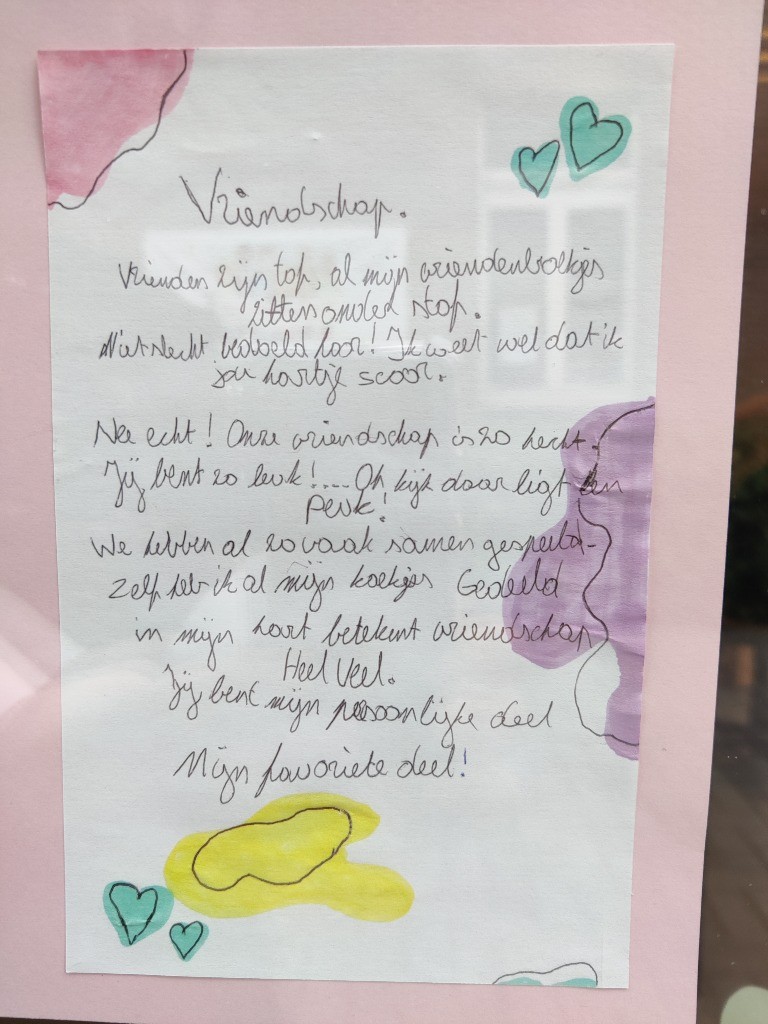 Vriendschap.
Vrienden zijn top, al mijn vriendenboekjes
zitten onder stop.
Niet slecht bedoeld hoor! Ik weet wel dat ik
jou hartje scoor.
Nee echt! Onze vriendschap is zo hecht.
Jij bent zo leuk!.... Oh kijk daar ligt een
Peuk!
We hebben al zo vaak samen gespeeld-
zelf heb ik al mijn koekjes Gedeeld
in mijn hart betekent vriendschap
Heel Veel.
Jij bent mijn persoonlijke deel
Mijn favoriete deel!